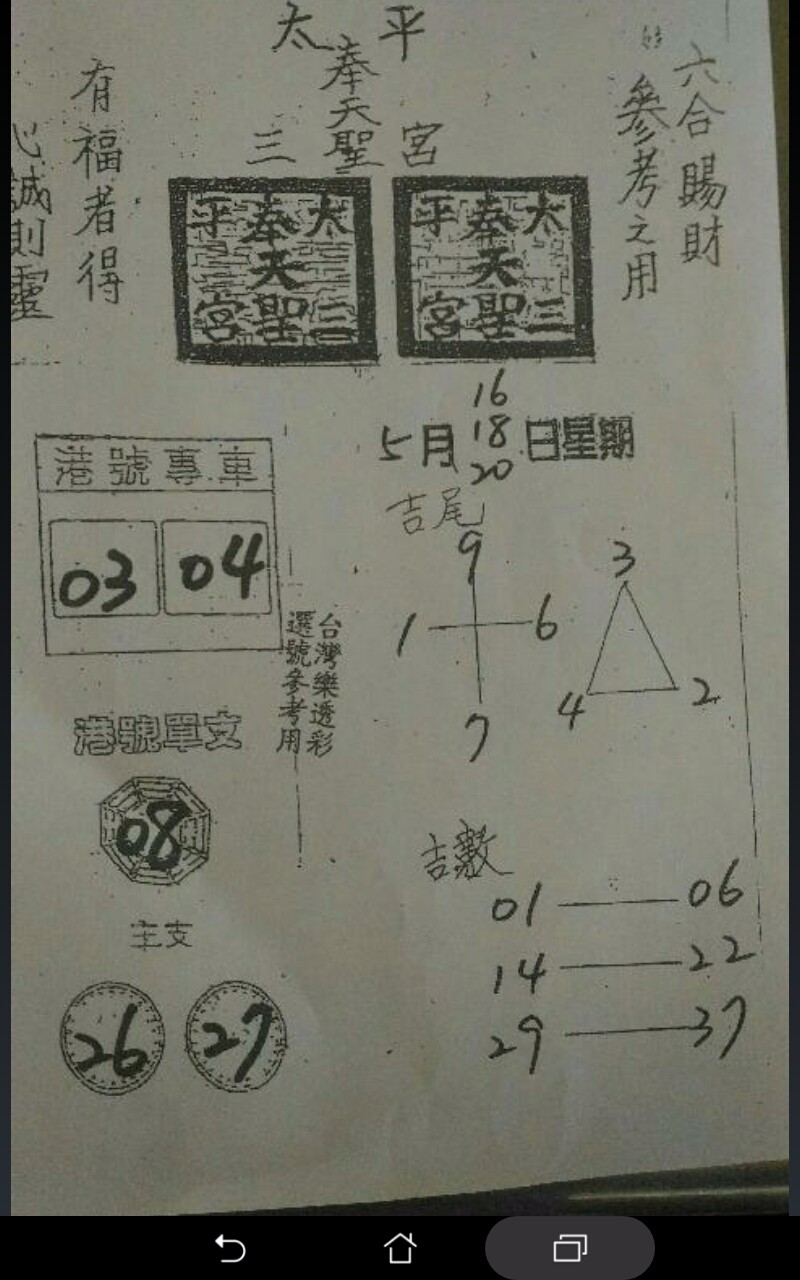 太平
奉天聖
三宮
六合賜財
參考之用
有福者得
心誠則靈
太三
奉天聖
平宮
太三
奉天聖
平宮
5月 16 18 20 日星期
港號專車
03 04
吉尾
9
1 6
7
3
4 2
台灣樂透彩
選號參考用
港號單支
08
吉數
01 — 06
14 — 22
29 — 37
主支
26 27